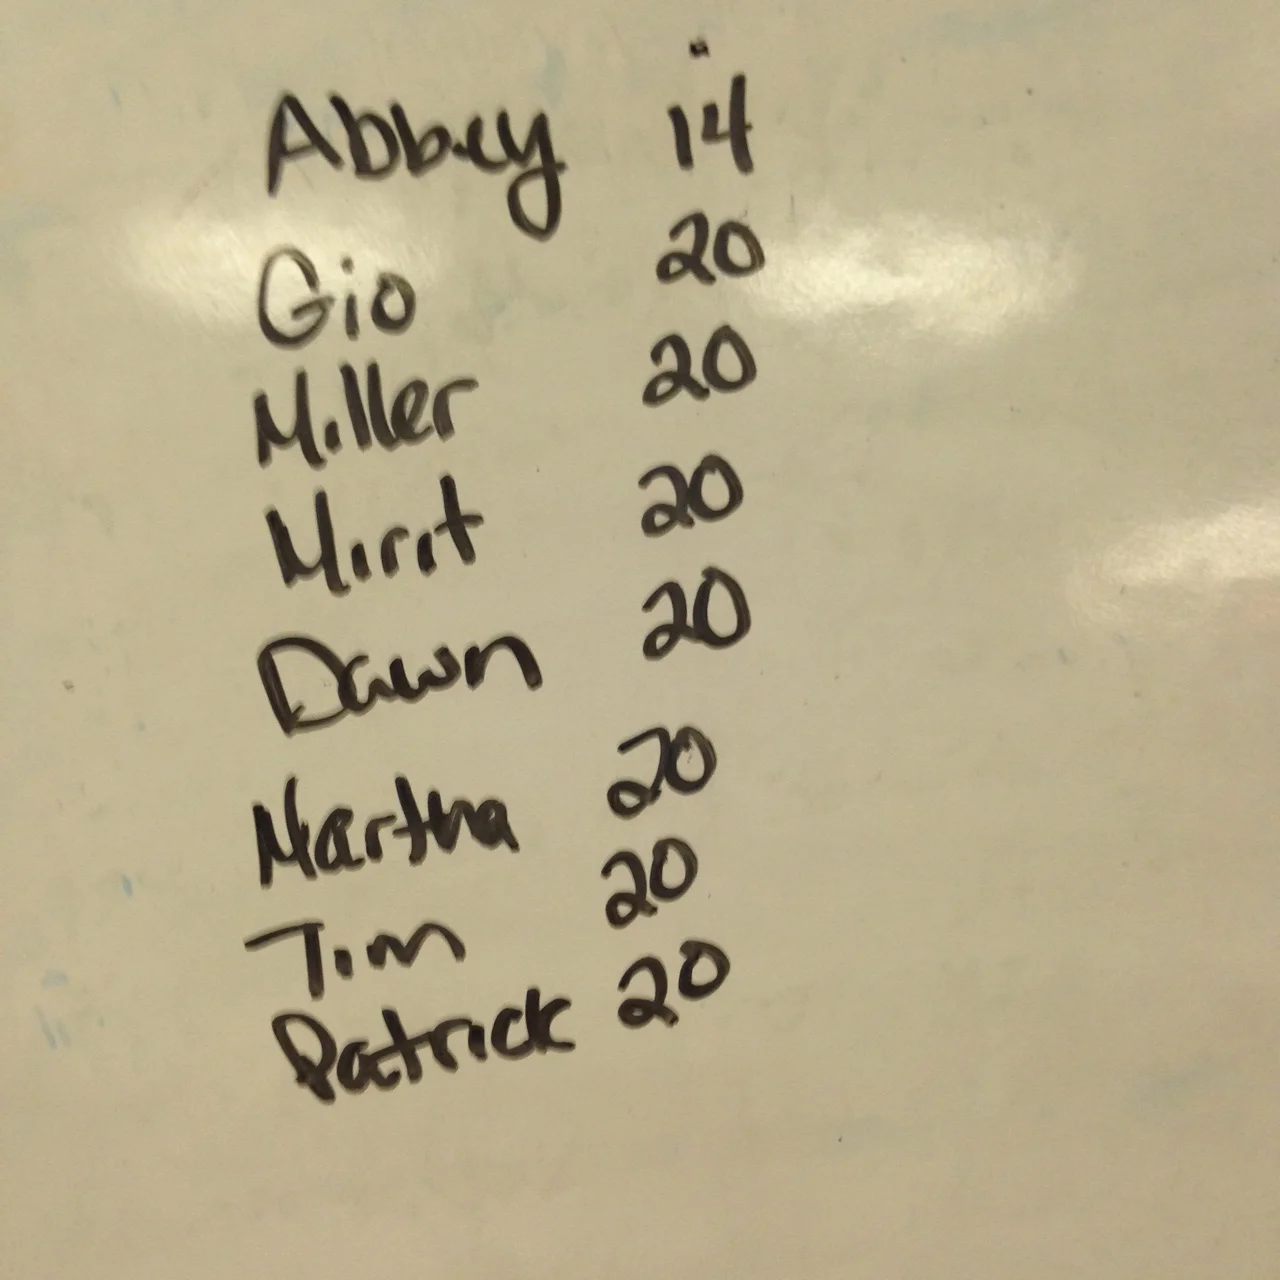 Abbey 14
Gio 20
Miller 20
Mirit 20
Dawn 20
Martha 20
Tim 20
Patrick 20